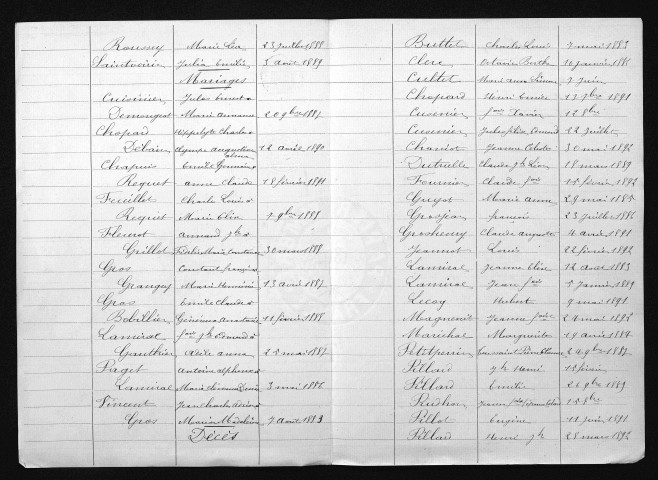 Roussey Marie Léa 23 juillet 1888
Saintvoirin Julia Emilie 5 août 1889
Mariages
Cuisinier Jules Ernest &
Demougeot Marie Armance 20 9bre 1887
Chopard Hippolyte Charles &
Débain Olympe Augustine 12 avril 1890
Chapuis Emile Germain &
Reguet Anne Claude 18 février 1891
Feuillet Charles Louis &
Reguet Marie Elise 7 9bre 1888
Fleurot Armand Jh &
Grillot Marie 30 mars 1888
Gros Constant François &
Grangey Marie Herminie 13 avril 1887
Gros Emile Claude &
Bobillier Anastasie 11 février 1888
Lamiral fois Jh Edmond &
Gauthier Adèle Anna 25 mai 1887
Paget Antoine Alphonse &
Lamiral Marie 3 mai 1886
Vincent Jean Charles &
Gros 7 août 1893
Décès
Buttet Charles Louis 7 mai 1883
Clerc Marie Berthe 10 janvier 1886
Cuttet Marie Anne 7 juin
Chopard Henri Emile 13 7bre 1891
Cusenier fois Xavier 12 8bre
Cusenier Edmond 22 juillet
Chaniot Jeanne 30 mai 1892
Dutruelle Claude Jh Léon 18 mars 1889
Fournier Claude fois 15 février 1892
Guyot Marie Anne 29 mai 1885
Grosjean françois 23 juillet 1886
Groshenry Claude Auguste 4 avril 1891
Jeannot Louis 22 février 1892
Lamiral Jeanne Elise 12 août 1883
Lamiral Jean fois 5 janvier 1889
Lecoy Hubert 9 mai 1891
Magnenet Jeanne foise 24 mai 1895
Maréchal Marguerite 19 avril 1884
Petitperrin Pierre Etienne 24 9bre 1887
Pillard Jh Henri 15 février
Pillard Emilie 26 9bre 1889
Prudhon Jeanne 15 8bre
Pillot Eugène 11 juin 1891
Pillard Henri Jh 28 mars 1892